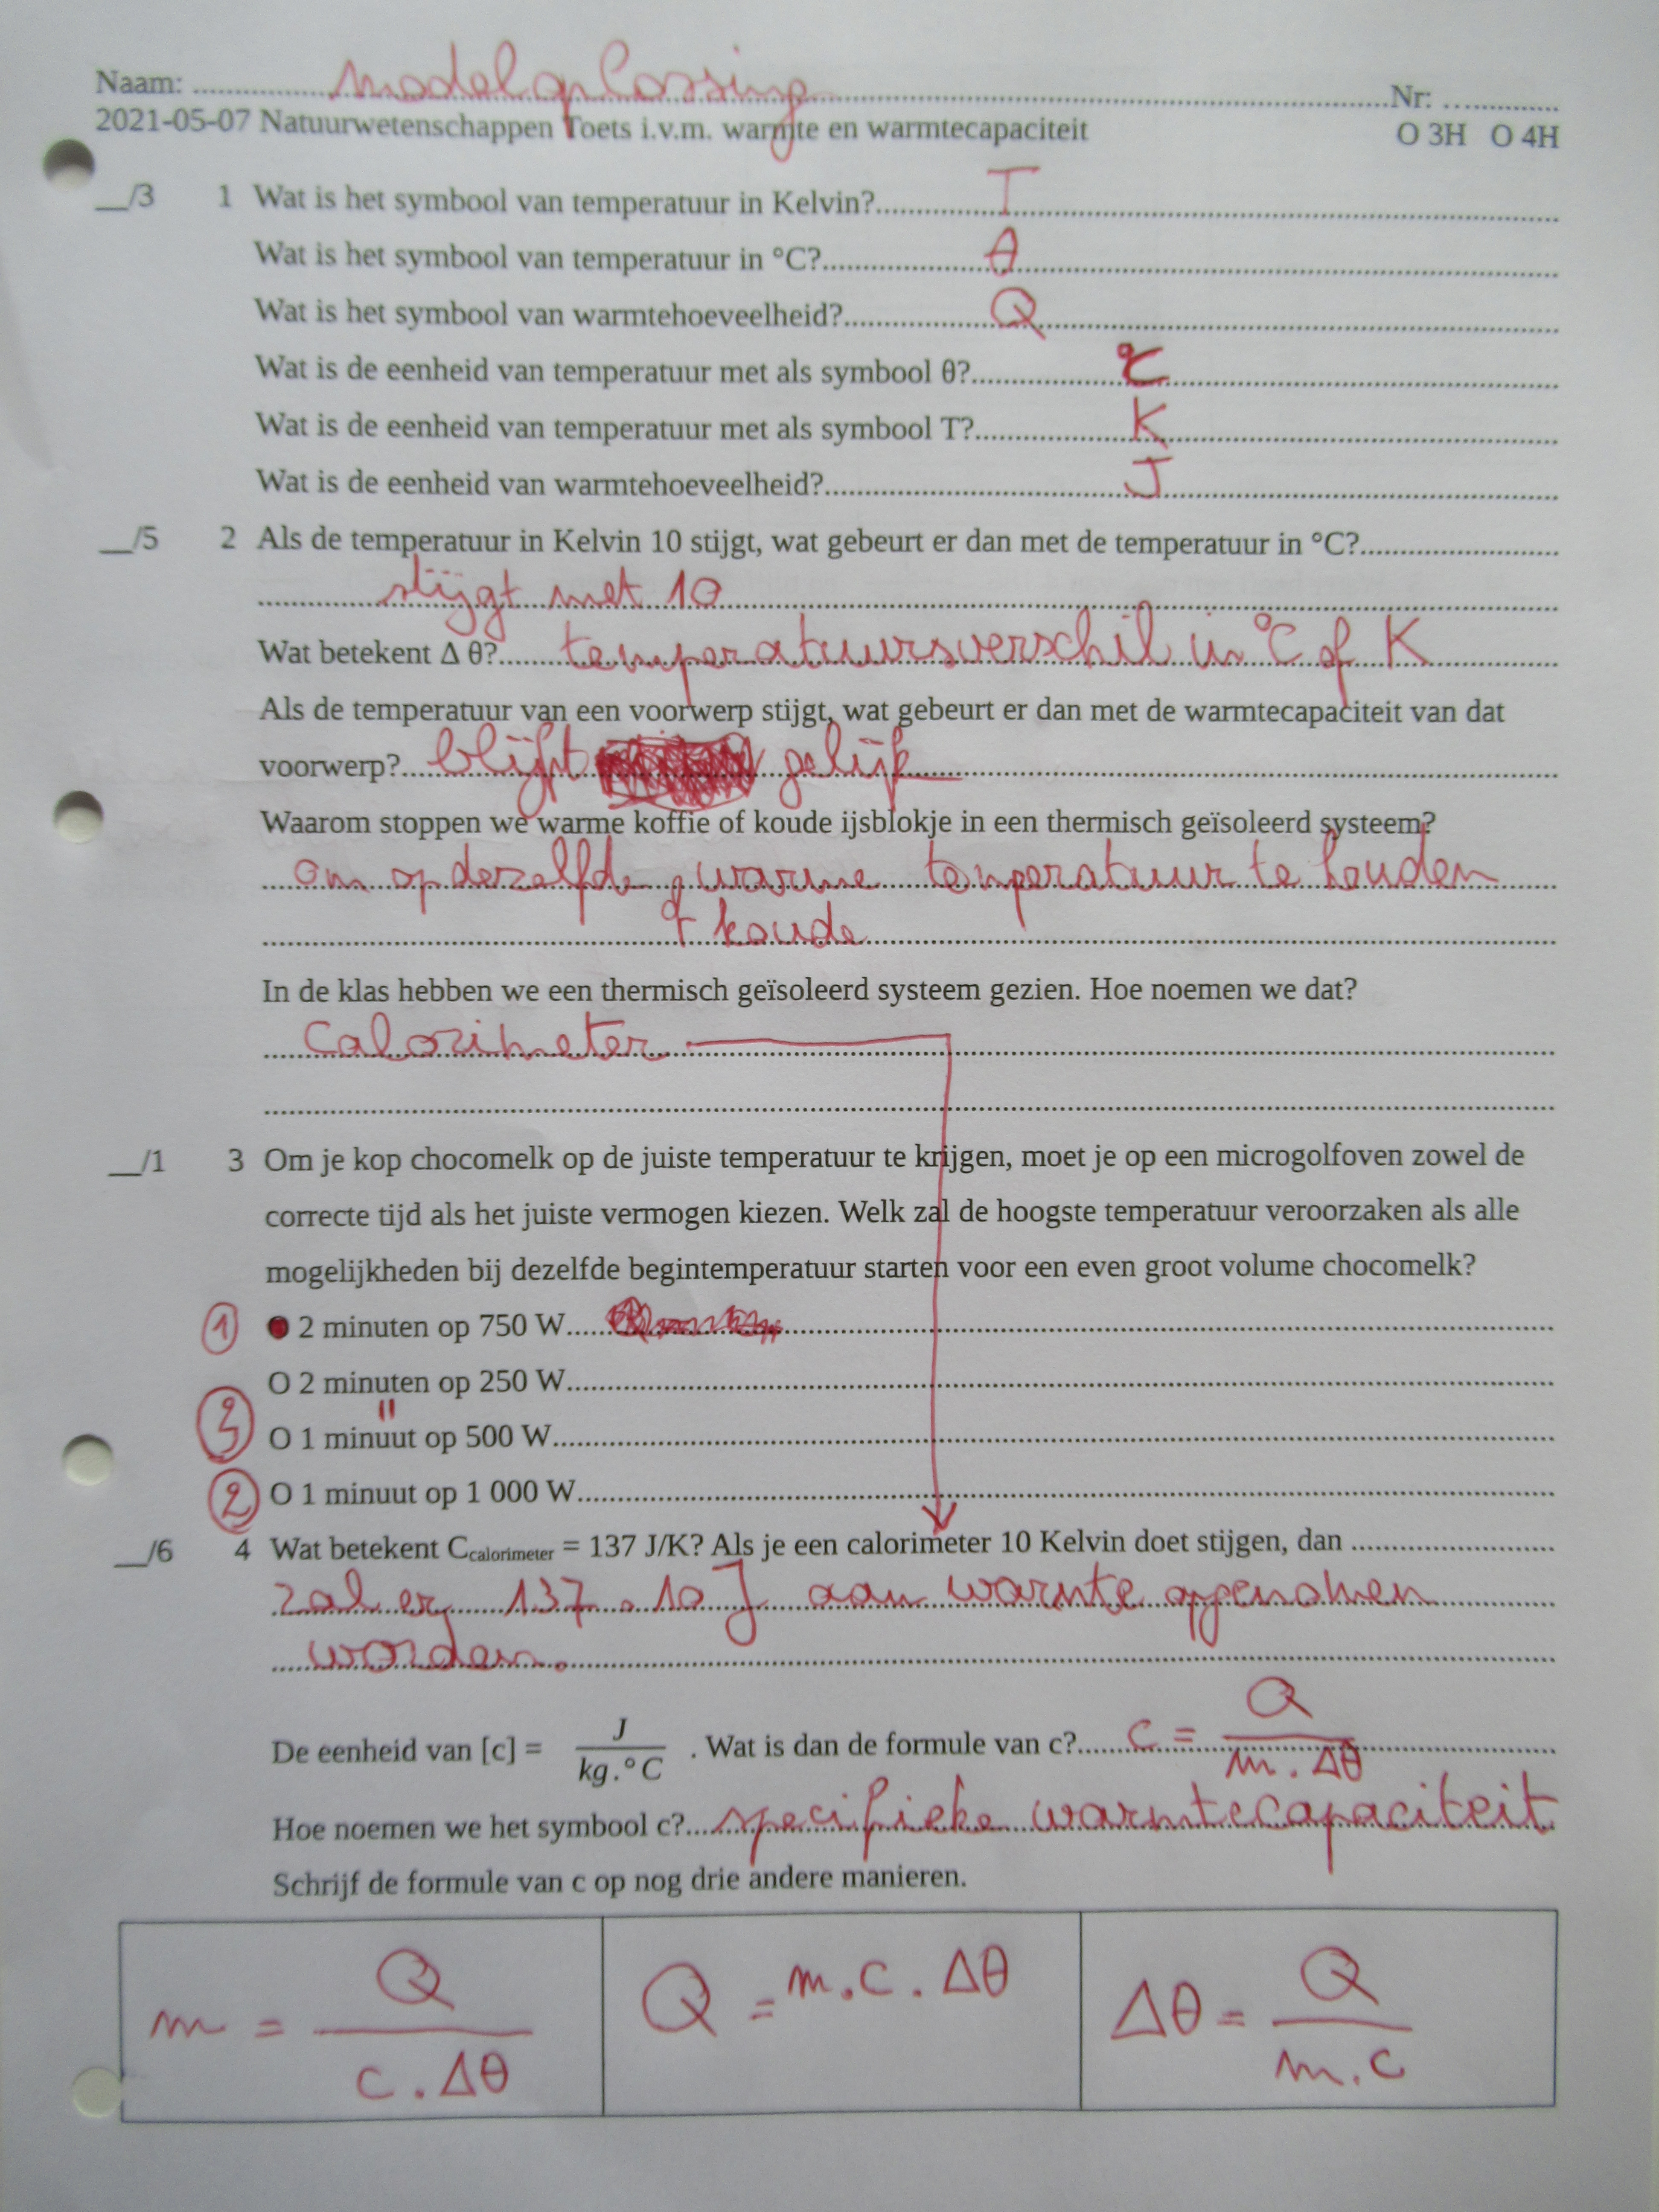 Naam: modeloplossing Nr:
2021-05-07 Natuurwetenschappen Toets i.v.m. warmte en warmtecapaciteit O 3H O 4H
__/3 1 Wat is het symbool van temperatuur in Kelvin? T
Wat is het symbool van temperatuur in °C? θ
Wat is het symbool van warmtehoeveelheid? Q
Wat is de eenheid van temperatuur met als symbool θ? °C
Wat is de eenheid van temperatuur met als symbool T? K
Wat is de eenheid van warmtehoeveelheid? J
__/5 2 Als de temperatuur in Kelvin 10 stijgt, wat gebeurt er dan met de temperatuur in °C?
stijgt met 10
Wat betekent Δ θ? temperatuursverschil in °C of K
Als de temperatuur van een voorwerp stijgt, wat gebeurt er dan met de warmtecapaciteit van dat
voorwerp? blijft gelijk
Waarom stoppen we warme koffie of koude ijsblokje in een thermisch geïsoleerd systeem?
om op dezelfde warme temperatuur te houden
of koude
In de klas hebben we een thermisch geïsoleerd systeem gezien. Hoe noemen we dat?
Calorimeter
__/1 3 Om je kop chocomelk op de juiste temperatuur te krijgen, moet je op een microgolfoven zowel de
correcte tijd als het juiste vermogen kiezen. Welk zal de hoogste temperatuur veroorzaken als alle
mogelijkheden bij dezelfde begintemperatuur starten voor een even groot volume chocomelk?
1 2 minuten op 750 W
O 2 minuten op 250 W
3 =
O 1 minuut op 500 W
2 O 1 minuut op 1 000 W
__/6 4 Wat betekent Ccalorimeter = 137 J/K? Als je een calorimeter 10 Kelvin doet stijgen, dan
zal er 137 . 10 J aan warmte opgenomen
worden.
De eenheid van [c] = J / kg.°C . Wat is dan de formule van c? c = Q / m . Δθ
Hoe noemen we het symbool c? specifieke warmtecapaciteit
Schrijf de formule van c op nog drie andere manieren.
m = Q / c . Δθ Q = m.c . Δθ Δθ = Q / m.c